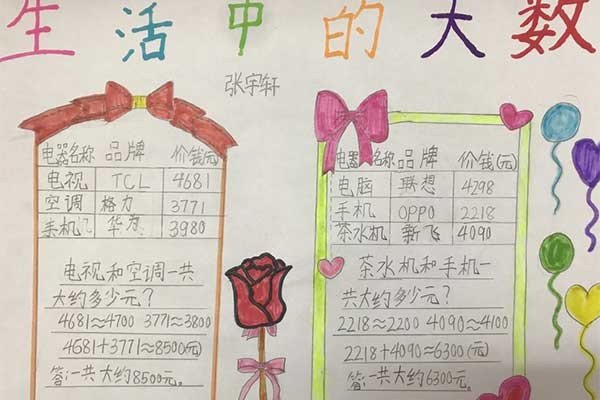 生活中的大数
张宇轩
电器名称 品牌 价钱(元)
电视 TCL 4681
空调 格力 3771
手机 华为 3980
电视和空调一共
大约多少元?
4681≈4700 3771≈3800
4681+3771≈8500(元)
答:一共大约8500元。
电器名称 品牌 价钱(元)
电脑 联想 4798
手机 OPPO 2218
茶水机 新飞 4090
茶水机和手机一
共大约多少元?
2218≈2200 4090≈4100
2218+4090≈6300(元)
答:一共大约6300元。